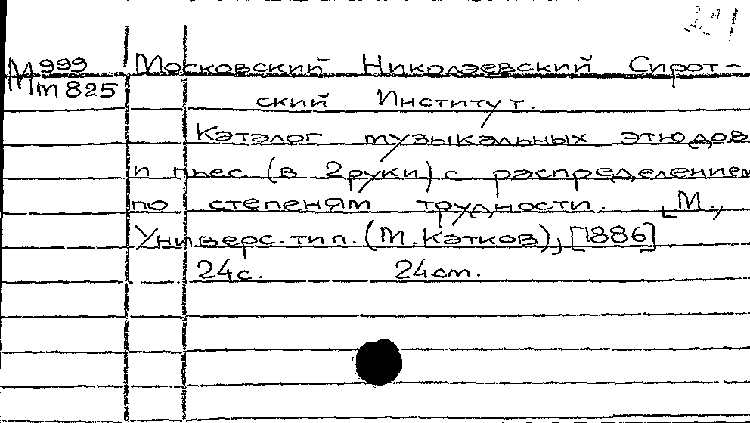 М 999 Московский Николаевский Сирот-
m 825 ский Институт.
Каталог музыкальных этюдов
и пьес (в 2 руки) с распределением
по степеням трудности. [М.,
Универс. тип. (М. Катков), [1886]
24с. 24cm.